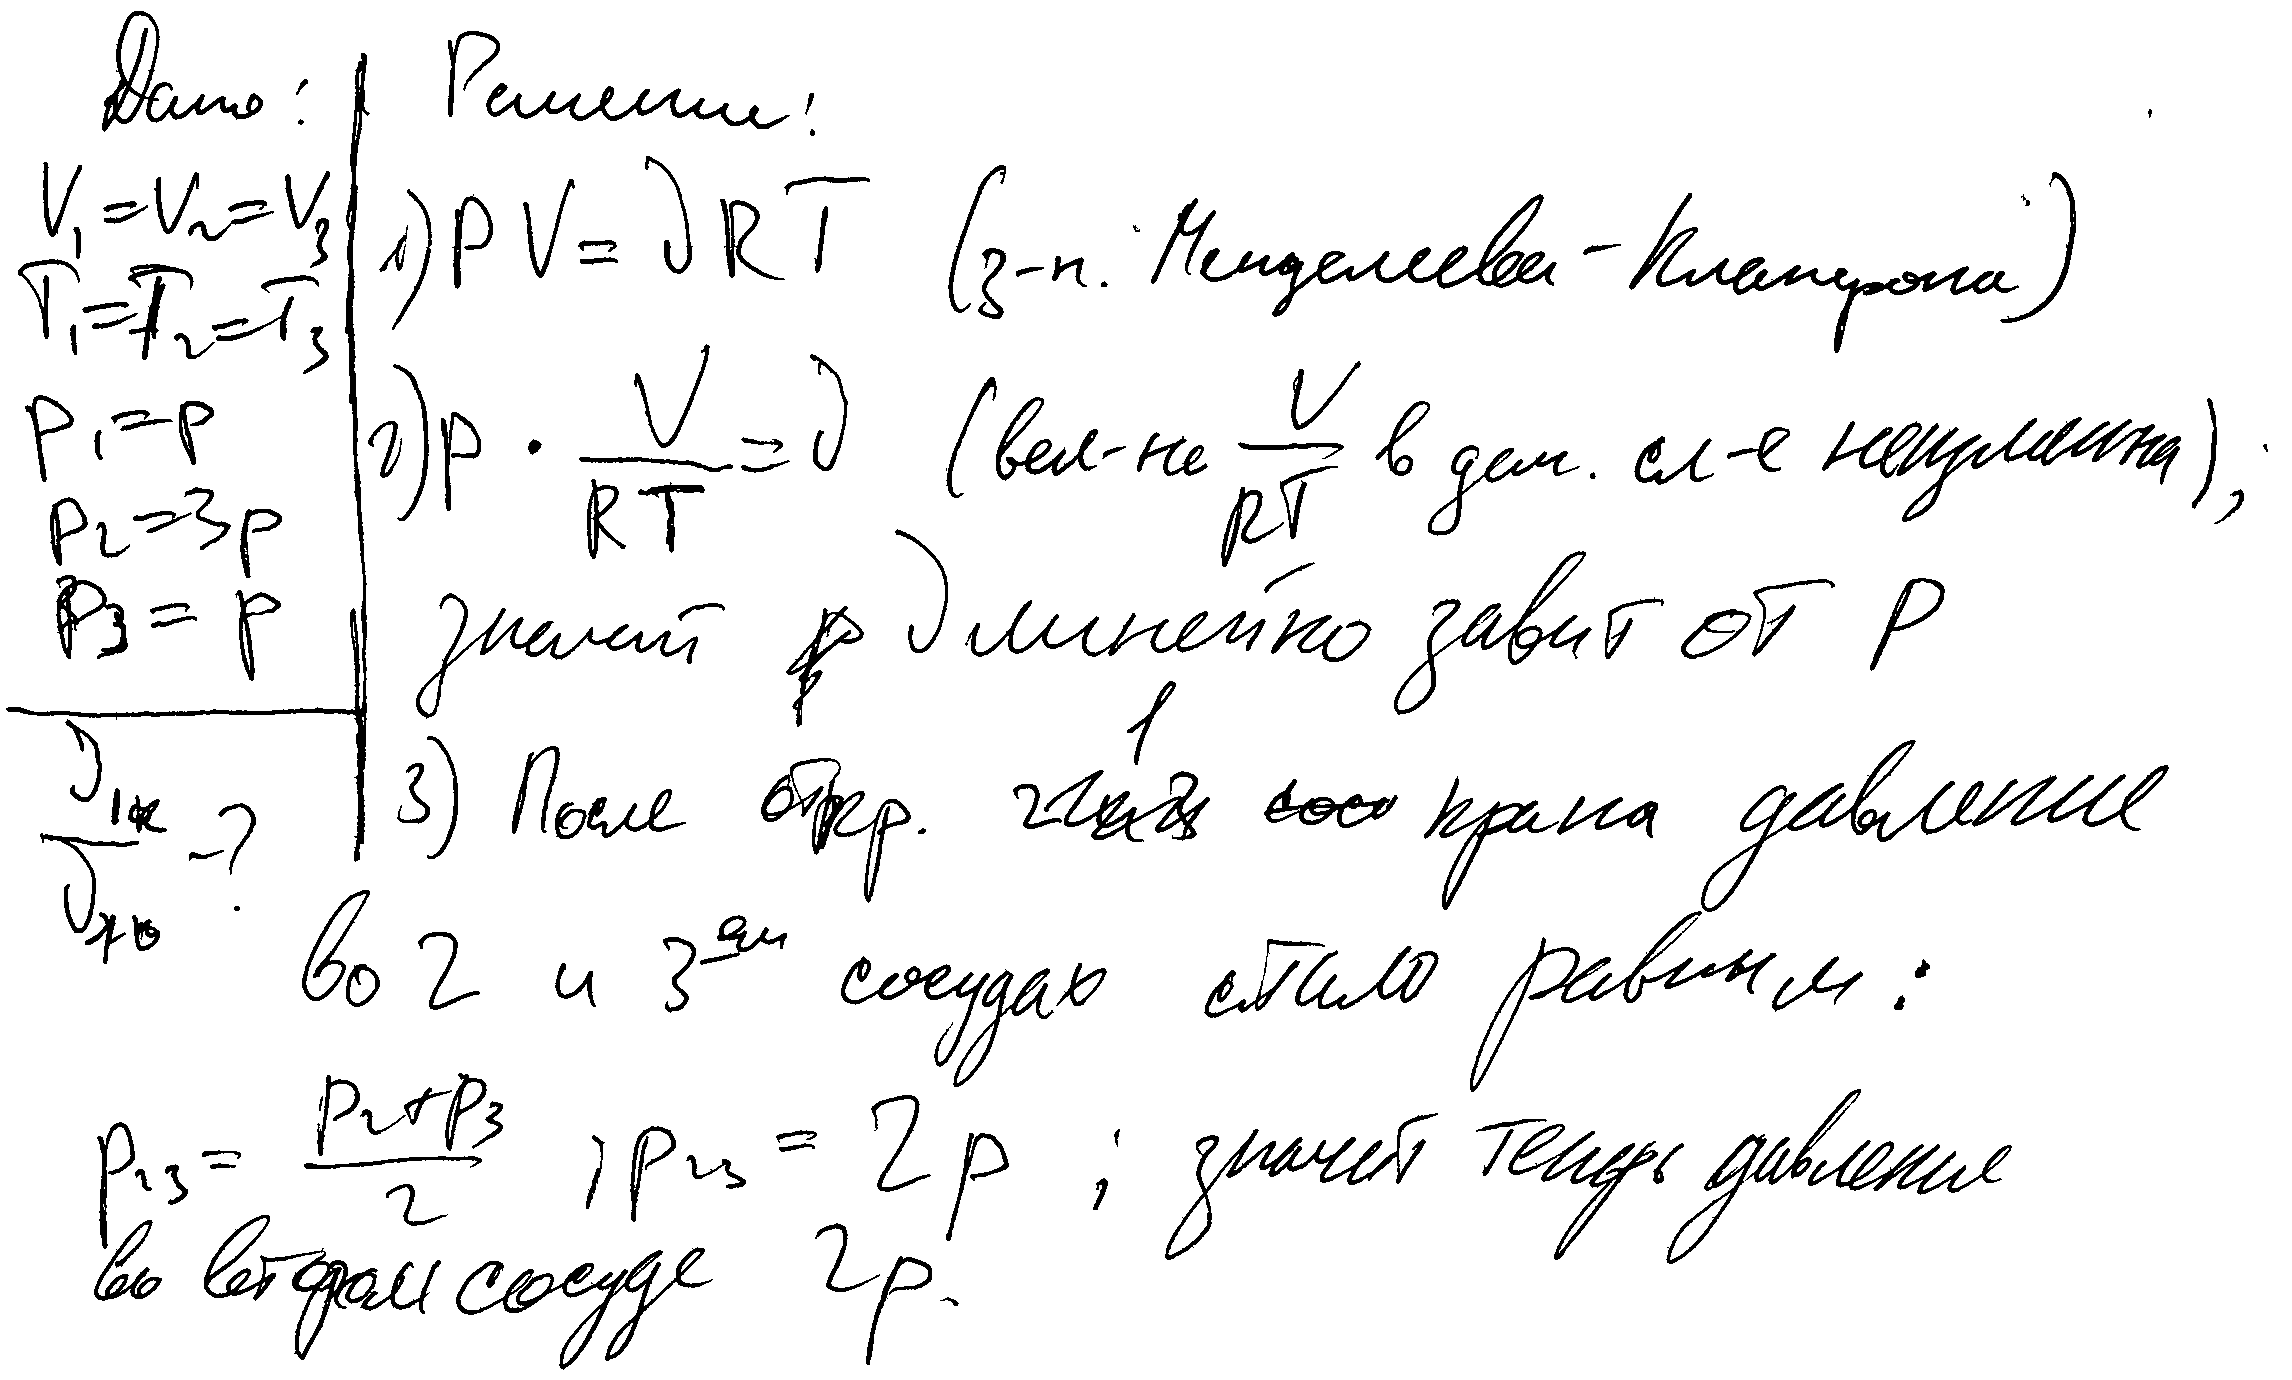 Дано:
V₁=V₂=V₃
T₁=T₂=T₃
p₁=p
p₂=3p
p₃=p
ν₁ₖ/ν₁₀ -?
Решение:
1) pV=νRT (з-н. Менделеева-Клаперона)
2) p · V/RT = ν (вел-на V/RT в дан. сл-е неизменна),
значит ν линейно завит от p
3) После откр. 1 крана давление
во 2 и 3-ем сосудах стало равным:
p₂₃ = (p₂+p₃)/2 ; p₂₃ = 2p ; значит теперь давление
во втором сосуде 2p.